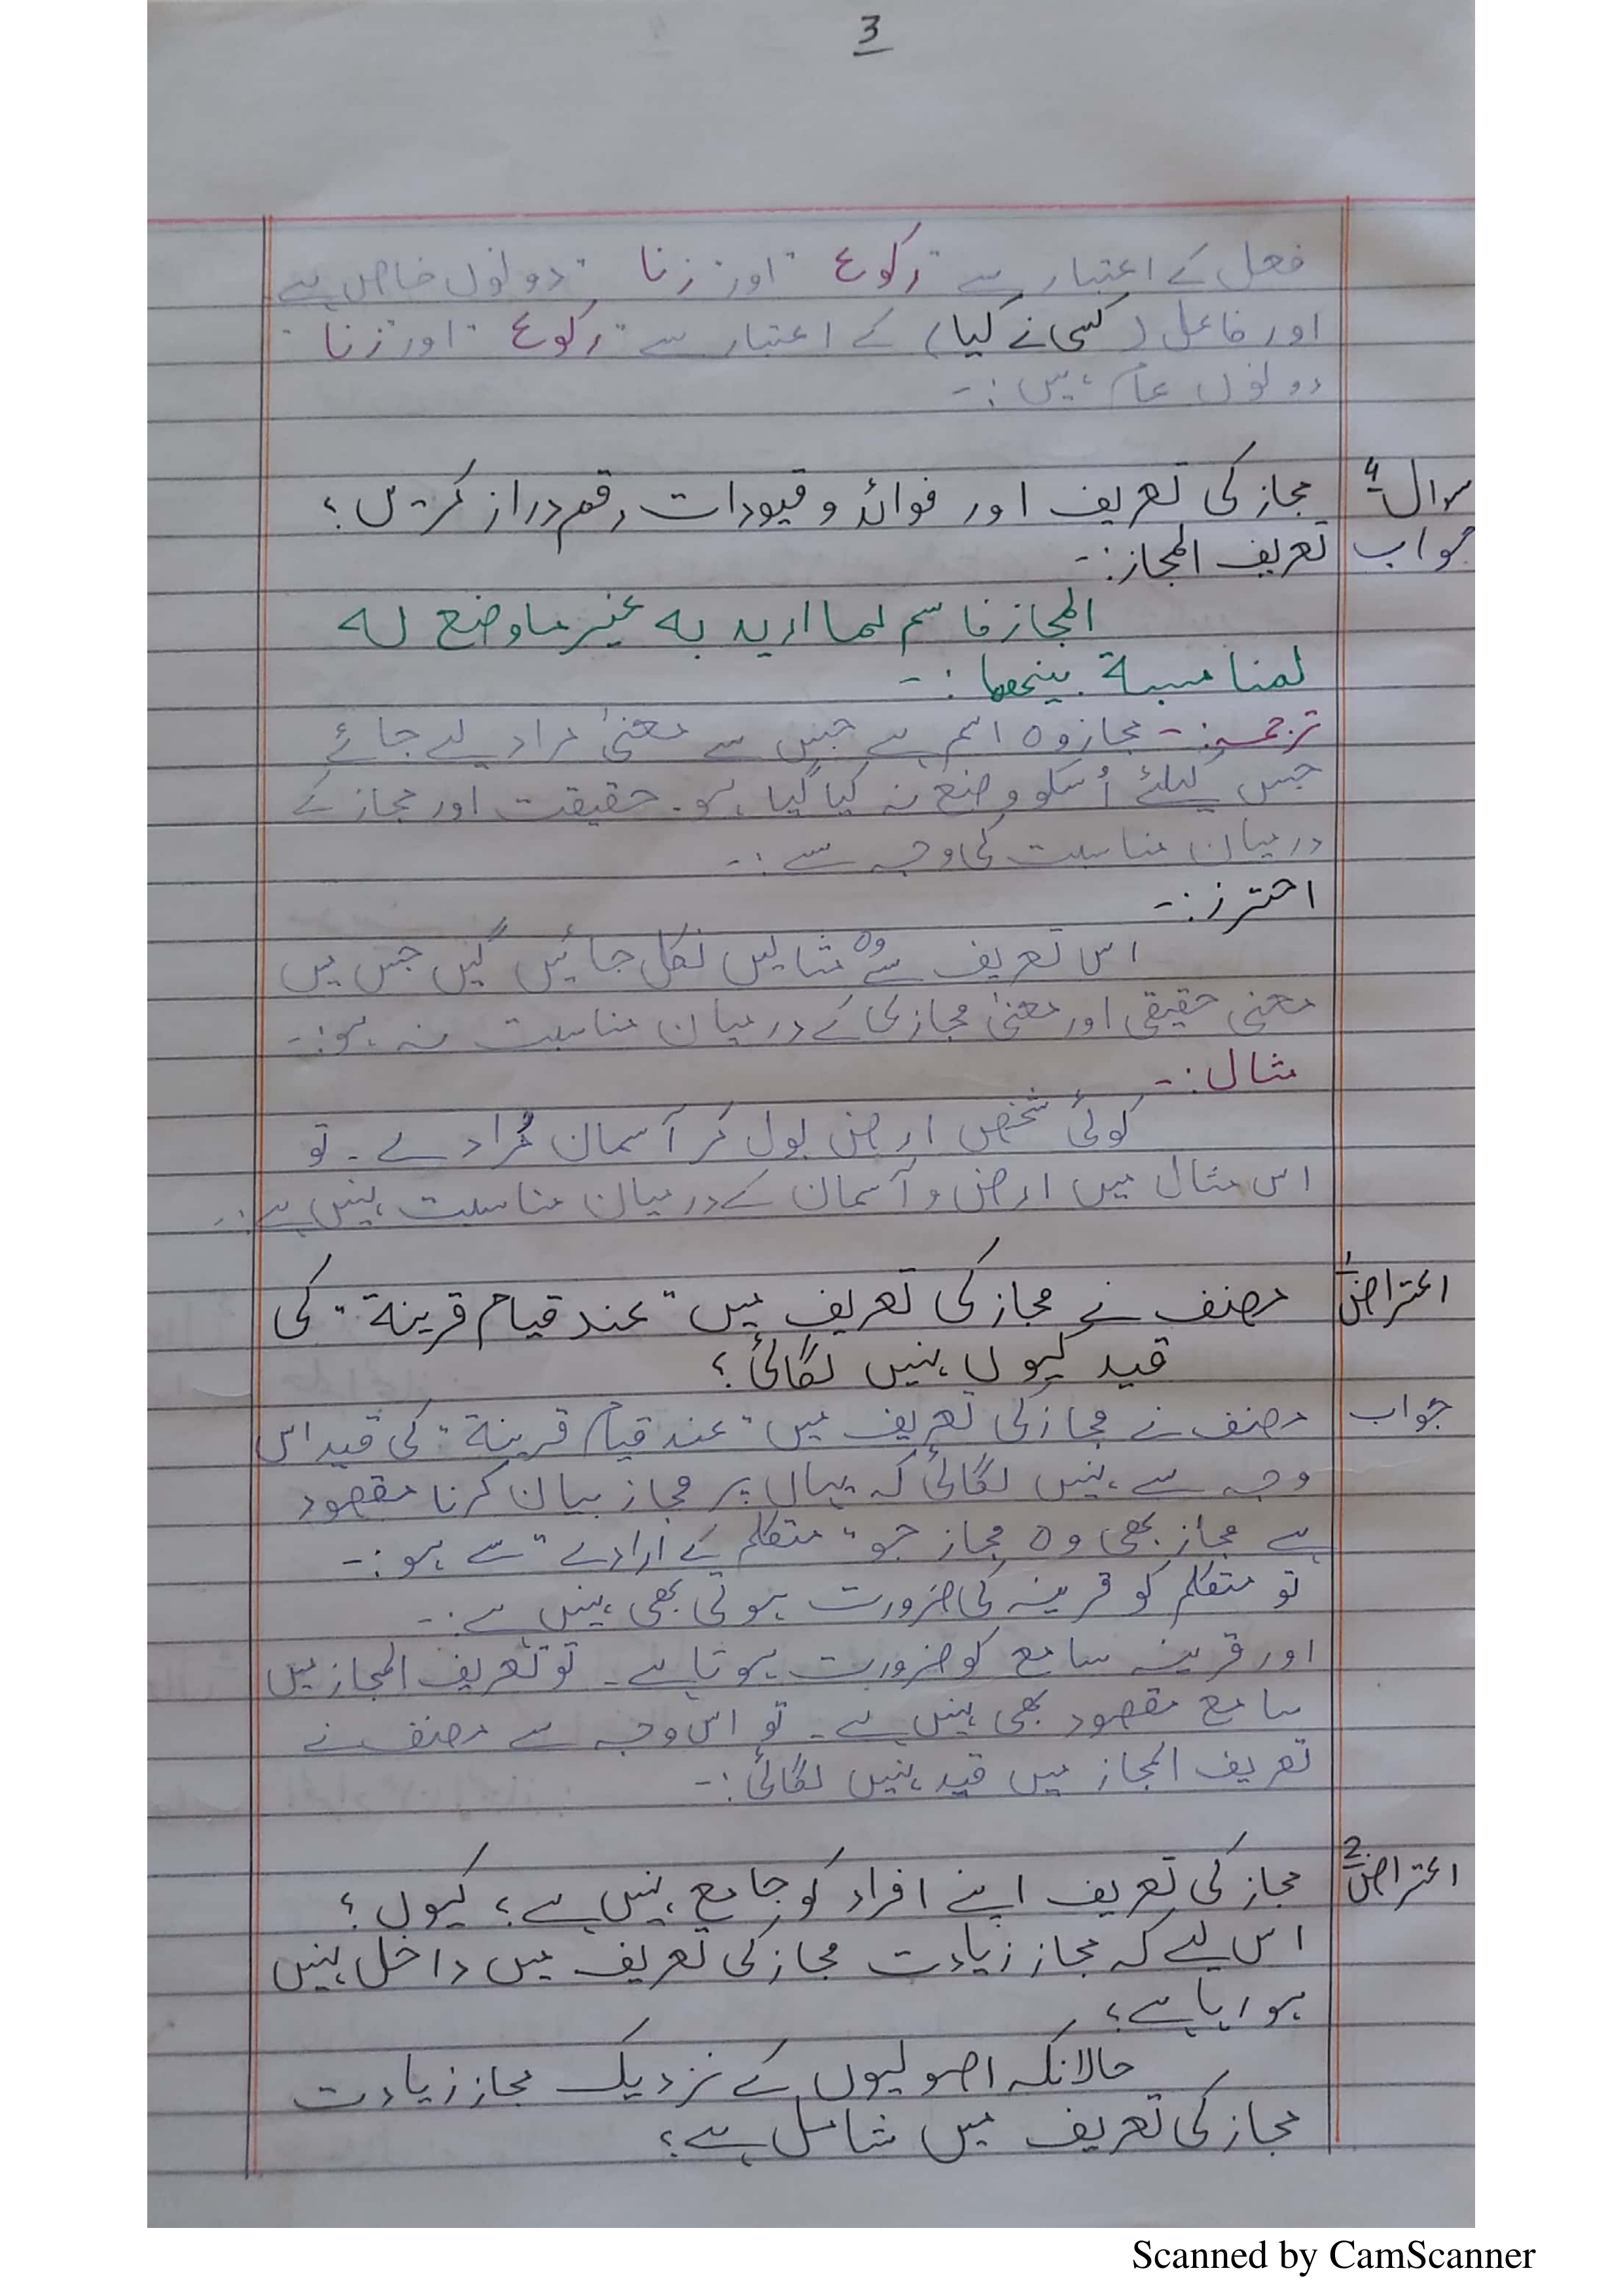 3
فعل کے اعتبار سے "رکوع" اور "زنا" دونوں خاص ہے
اور فاعل (کسی نے کیا) کے اعتبار سے "رکوع" اور "زنا"
دونوں عام ہیں:-
سوال 4 مجاز کی تعریف اور فوائد و قیودات رقم دراز کریں؟
جواب تعریف المجاز:-
المجاز فاسم لما ارید به غیر ما وضع له
لمناسبة بینھما:-
ترجمہ:- مجاز وہ اسم ہے جس سے معنیٰ مراد لیے جائے
جس کیلئے اُسکو وضع نہ کیا گیا ہو۔ حقیقت اور مجاز کے
درمیان مناسبت کی وجہ سے:-
احترز:-
اس تعریف سے وہ مثالیں نکل جائیں گیں جس میں
معنی حقیقی اور معنیٰ مجازی کے درمیان مناسبت نہ ہو:-
مثال:-
کوئی شخص ارض بول کر آسمان مُراد لے۔ تو
اس مثال میں ارض و آسمان کے درمیان مناسبت نہیں ہے:-
اعتراض 1 مصنف نے مجاز کی تعریف میں "عند قیام قرینة" کی
قید کیوں نہیں لگائی؟
جواب مصنف نے مجاز کی تعریف میں "عند قیام قرینة" کی قید اس
وجہ سے نہیں لگائی کہ یہاں پر مجاز بیان کرنا مقصود
ہے مجاز بھی وہ مجاز جو "متکلم کے ارادے" سے ہو:-
تو متکلم کو قرینہ کی ضرورت ہوتی بھی نہیں ہے:-
اور قرینہ سامع کو ضرورت ہوتا ہے۔ تو تعریف المجاز میں
سامع مقصود بھی نہیں ہے۔ تو اس وجہ سے مصنف نے
تعریف المجاز میں قید نہیں لگائی:-
اعتراض 2 مجاز کی تعریف اپنے افراد کو جامع نہیں ہے؟ کیوں؟
اس لیے کہ مجاز زیادت مجاز کی تعریف میں داخل نہیں
ہو رہا ہے؟
حالانکہ اصولیوں کے نزدیک مجاز زیادت
مجاز کی تعریف میں شامل ہے؟
Scanned by CamScanner